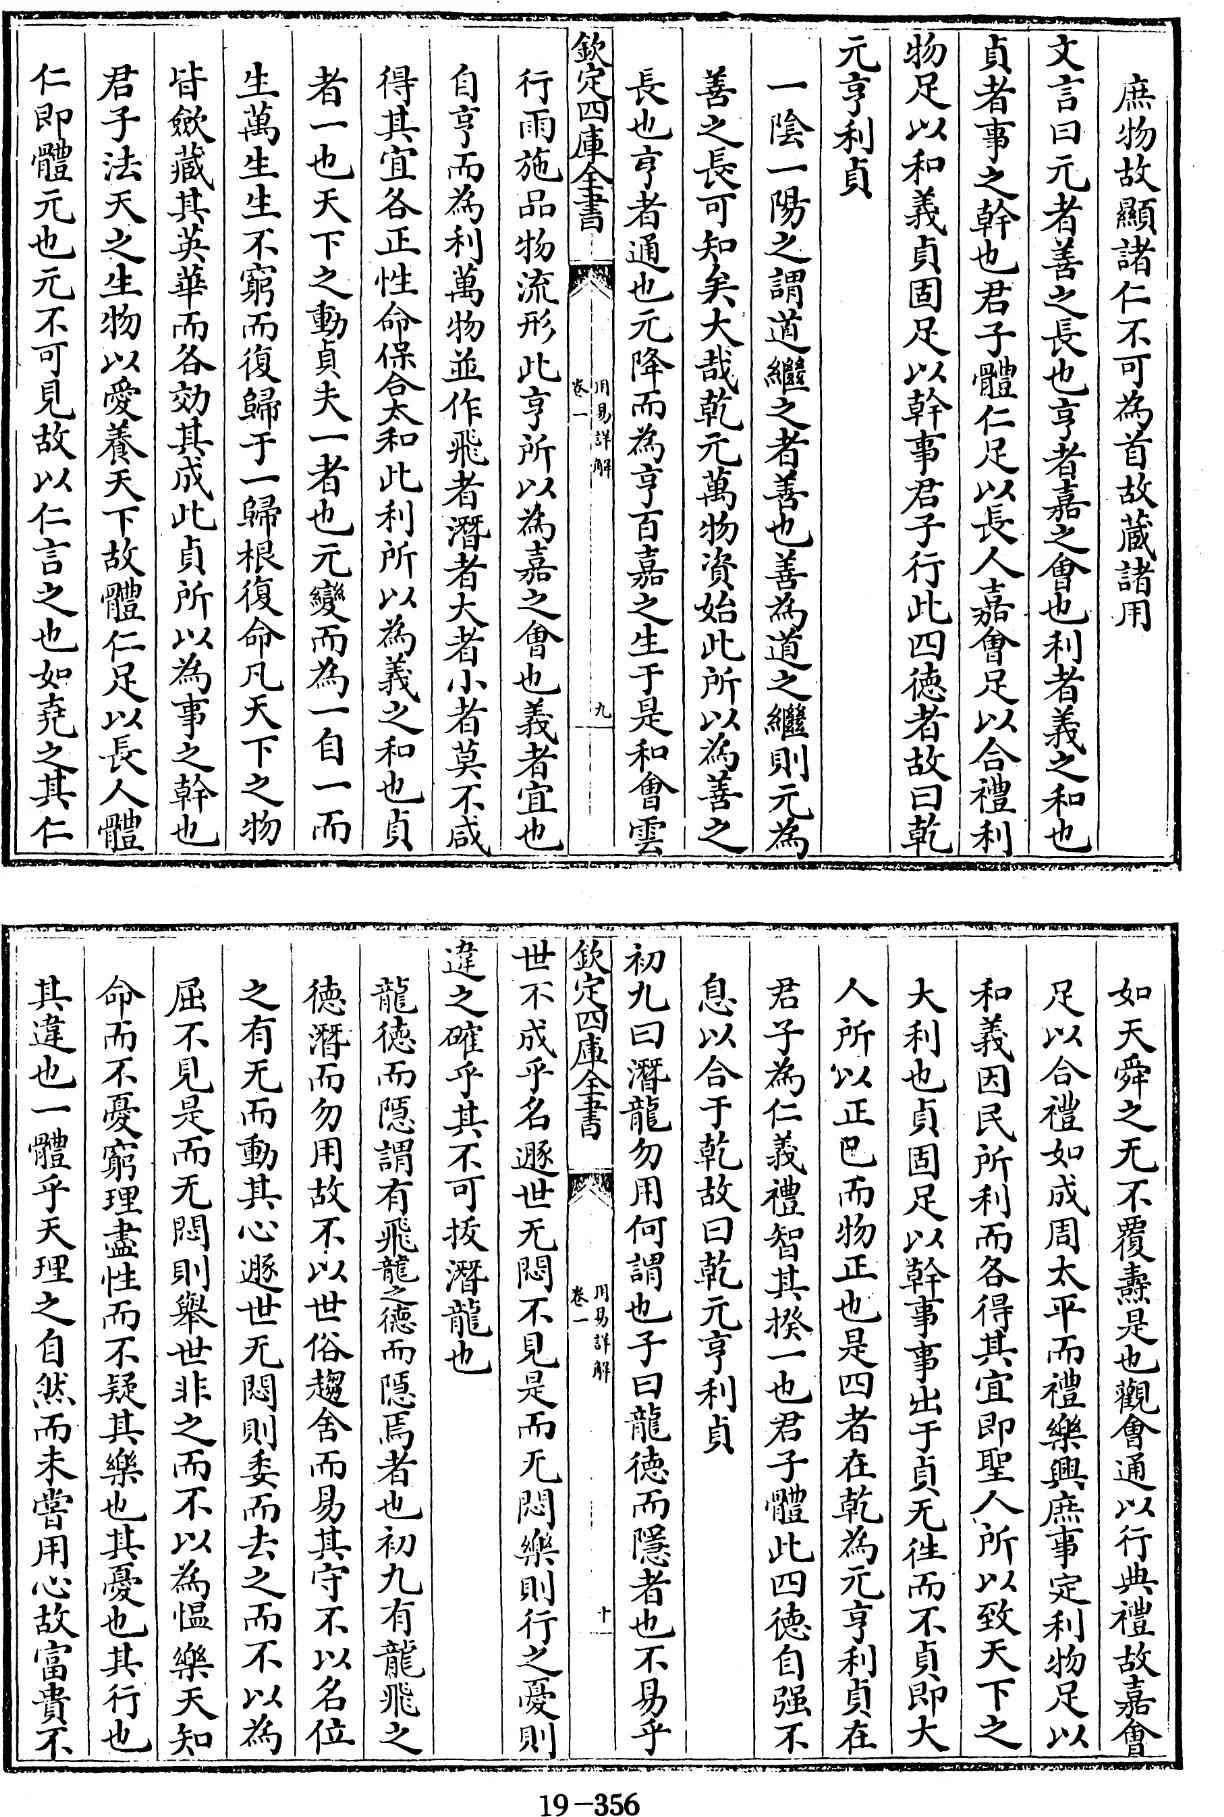 庶物故顯諸仁不可為首故蔵諸用
文言曰元者善之長也亨者嘉之㑹也利者義之和也
貞者事之幹也君子體仁足以長人嘉㑹足以合禮利
物足以和義貞固足以幹事君子行此四徳者故曰乾
元亨利貞
一陰一陽之謂道繼之者善也善為道之繼則元為
善之長可知矣大哉乾元萬物資始此所以為善之
長也亨者通也元降而為亨百嘉之生于是和㑹雲
欽定四庫全書
周易詳解
卷一
九
行雨施品物流形此亨所以為嘉之㑹也義者宜也
自亨而為利萬物並作飛者潛者大者小者莫不咸
得其宜各正性命保合太和此利所以為義之和也貞
者一也天下之動貞夫一者也元變而為一自一而
生萬生生不窮而復歸于一歸根復命凡天下之物
皆斂藏其英華而各效其成此貞所以為事之幹也
君子法天之生物以愛養天下故體仁足以長人體
仁即體元也元不可見故以仁言之也如堯之其仁
如天舜之无不覆燾是也觀會通以行典禮故嘉㑹
足以合禮如成周太平而禮樂興庶事定利物足以
和義因民所利而各得其宜即聖人所以致天下之
大利也貞固足以幹事事出于貞无徃而不貞即大
人所以正已而物正也是四者在乾為元亨利貞在
君子為仁義禮智其揆一也君子體此四徳自强不
息以合于乾故曰乾元亨利貞
初九曰潛龍勿用何謂也子曰龍徳而隱者也不易乎
欽定四庫全書
周易詳解
卷一
十
世不成乎名遯世无悶不見是而无悶樂則行之憂則
違之確乎其不可拔潛龍也
龍徳而隱謂有飛龍之徳而隱焉者也初九有龍飛之
徳潛而勿用故不以世俗趨舍而易其守不以名位
之有无而動其心遯世无悶則委而去之而不以為
屈不見是而无悶則舉世非之而不以為愠樂天知
命而不憂窮理盡性而不疑其樂也其憂也其行也
其違也一體乎天理之自然而未嘗用心故富貴不
19-356